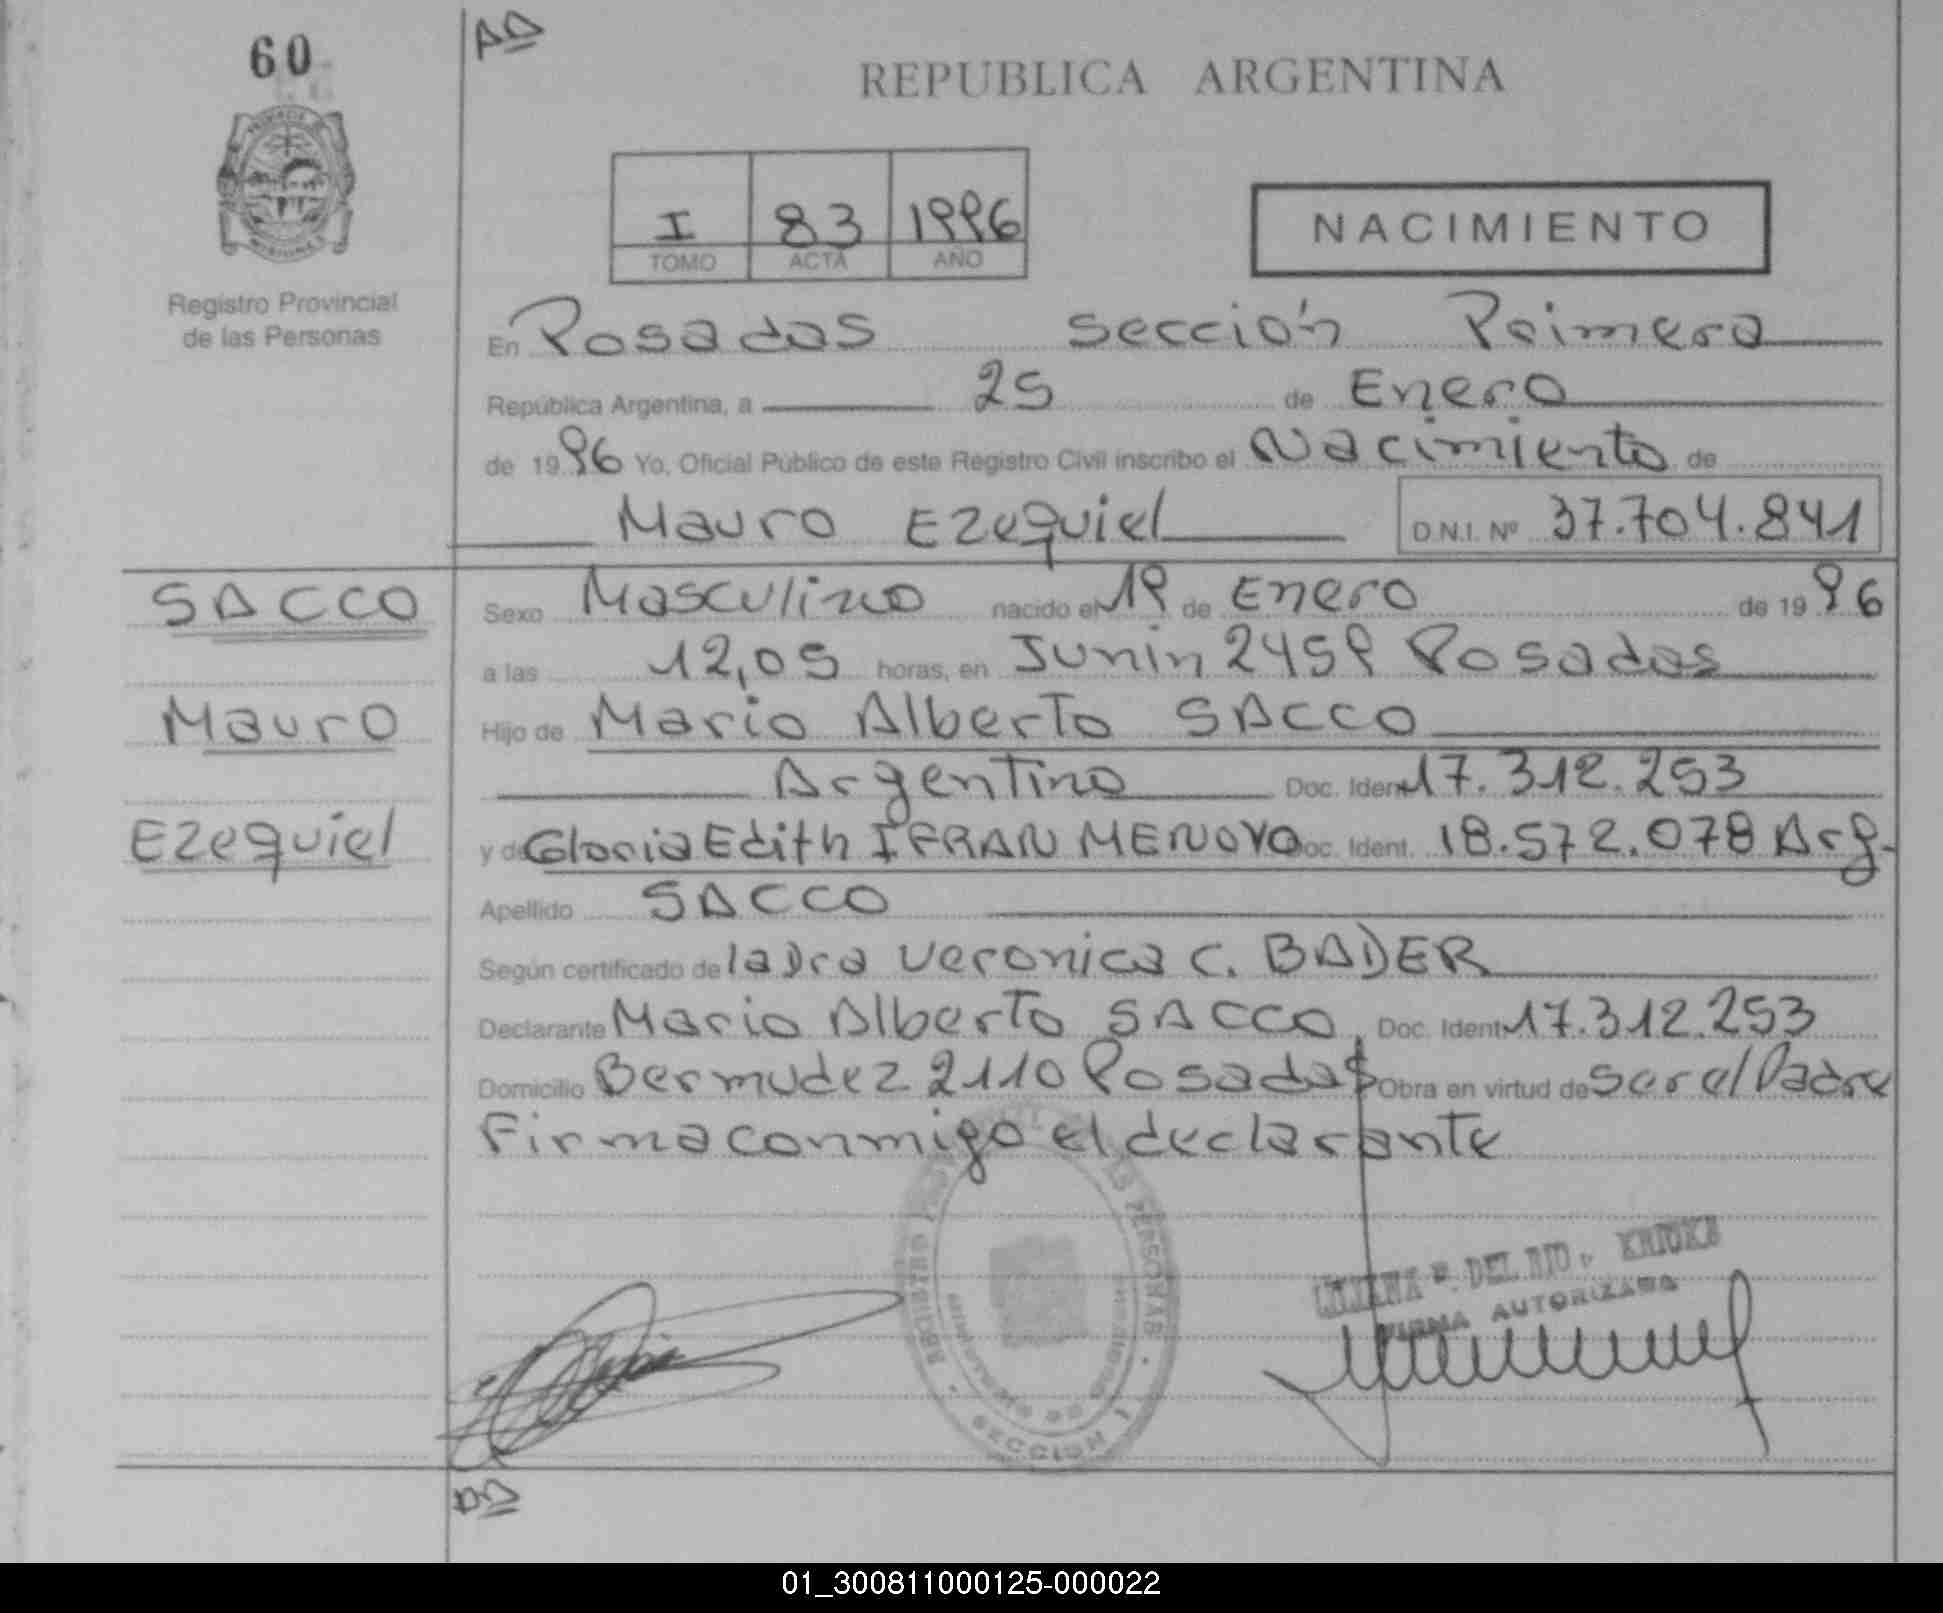 60
AD
REPUBLICA ARGENTINA
I 83 1996
TOMO ACTA AÑO
NACIMIENTO
Registro Provincial
de las Personas
En Posadas Sección Primera
República Argentina, a 25 de Enero
de 1996 Yo, Oficial Público de este Registro Civil inscribo el Nacimiento de
Mauro Ezequiel D.N.I. Nº 37.704.841
SACCO
Mauro
Ezequiel
Sexo Masculino nacido el 19 de Enero de 1996
a las 12,05 horas, en Junin 2459 Posadas
Hijo de Mario Alberto SACCO
Argentino Doc. Ident 17.312.253
y de Gloria Edith IFRAN MENOYO Doc. Ident. 18.572.078 Arg.
Apellido SACCO
Según certificado de la Dra Veronica C. BADER
Declarante Mario Alberto SACCO Doc. Ident 17.312.253
Domicilio Bermudez 2110 Posadas Obra en virtud de ser el Padre
Firma conmigo el declarante
REGISTRO LAS PERSONAS
SECCION 1
DEL RIO
FIRMA AUTORIZADA
01_300811000125-000022